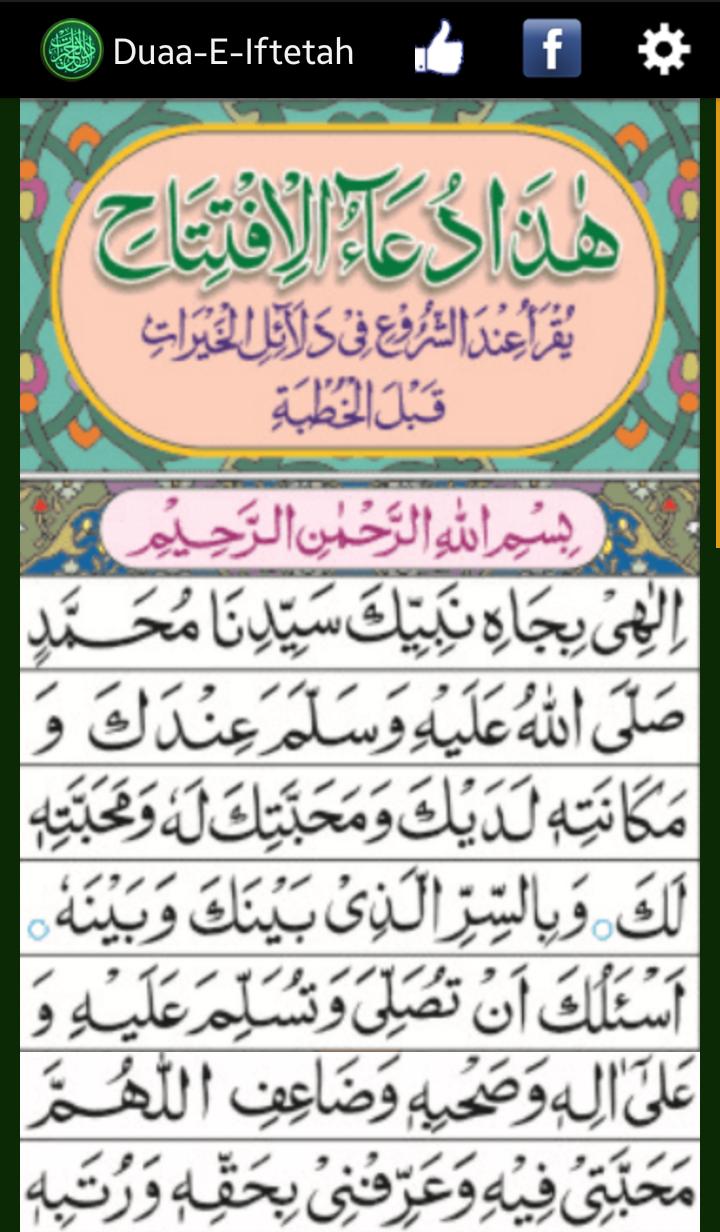 Duaa-E-Iftetah
هٰذَا دُعَآءُ الْاِفْتِتَاحِ
يُقْرَأُ عِنْدَ الشُّرُوْعِ فِىْ دَلَآئِلِ الْخَيْرَاتِ
قَبْلَ الْخُطْبَةِ
بِسْمِ اللهِ الرَّحْمٰنِ الرَّحِيْمِ
اِلٰهِىْ بِجَاهِ نَبِيِّكَ سَيِّدِنَا مُحَمَّدٍ
صَلَّى اللهُ عَلَيْهِ وَسَلَّمَ عِنْدَكَ وَ
مَكَانَتِهٖ لَدَيْكَ وَمَحَبَّتِكَ لَهٗ وَمَحَبَّتِهٖ
لَكَ ○ وَبِالسِّرِّ الَّذِىْ بَيْنَكَ وَبَيْنَهٗ ○
اَسْئَلُكَ اَنْ تُصَلِّىَ وَتُسَلِّمَ عَلَيْهِ وَ
عَلٰىٓ اٰلِهٖ وَصَحْبِهٖ وَضَاعِفِ اللّٰهُمَّ
مَحَبَّتِىْ فِيْهِ وَعَرِّفْنِىْ بِحَقِّهٖ وَرُتَبِهٖ